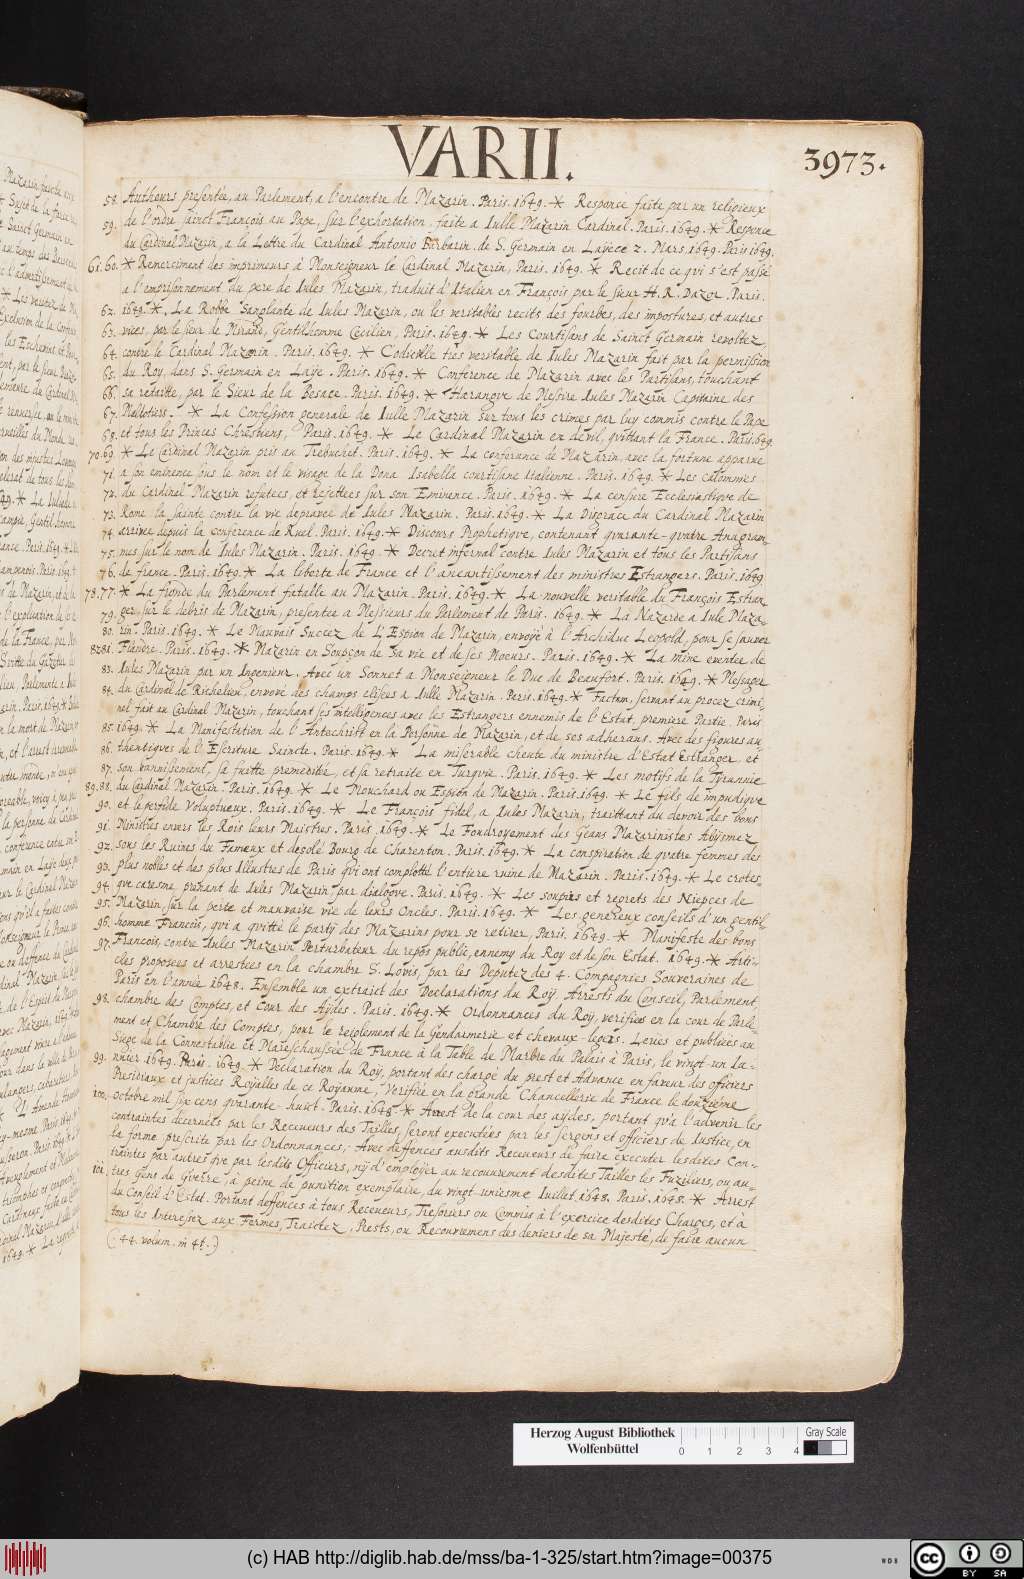 VARII.
3973.
58. Autheurs presentée, au Parlement, a l'encontre de Mazarin. Paris. 1649. * Responce faite par un religieux
59. de l'ordre sainct François au Pape, sur l'exhortation faite a Iulle Mazarin Cardinal. Paris. 1649. * Responce
du Cardinal Mazarin, a la Lettre du Cardinal Antonio Barbarin. de S. Germain en Layece 2. Mars 1649. Paris 1649.
61. 60. * Remerciment des imprimeurs à Monseigneur le Cardinal Mazarin, Paris. 1649. * Recit de ce qui s'est passé
a l'emprisonnement du pere de Iules Mazarin, traduit d'Italien en François par le sieur H. R. Dazor. Paris.
62. 1649. * La Robbe Sanglante de Iules Mazarin, ou les veritables recits des fourbes, des impostures, et autres
63. vices, par le sieur de Mirand, Gentilhomme Cecilien, Paris. 1649. * Les Courtisans de Sainct Germain revoltez,
64. contre le Cardinal Mazarin. Paris. 1649. * Codicille très veritable de Iules Mazarin fait par la permission
65. du Roy, dans S. Germain en Laye. Paris. 1649. * Conference de Mazarin avec les Partisans, touchant
66. sa retaitte, par le Sieur de la Besace. Paris. 1649. * Harangve de Messire Iules Mazarin Capitaine des
67. Maltotiers. * La Confession generale de Iulle Mazarin sur tous les crimes par luy commis contre le Pape
68. et tous les Princes Chrestiens, Paris. 1649. * Le Cardinal Mazarin en devil, quittant la France. Paris. 649.
70. 69. * Le Cardinal Mazarin pris au Trebuchet. Paris. 1649. * La conferance de Mazarin, avec la fortune apparue
71. a son eminence sous le nom et le visage de la Dona Isabella courtisane Italienne. Paris. 1649. * Les calommies
72. du Cardinal Mazarin refutees, et rejettees sur son Eminance. Paris. 1649. * La censure Ecclesiastiqve de
73. Rome la sainte contre la vie depravee de Iules Mazarin. Paris. 1649. * La Disgrace du Cardinal Mazarin
74. arrivee depuis la conference de Ruel. Paris. 1649. * Discours Prophetiqve, contenant qvarante-qvatre Anagram
75. mes sur le nom de Iules Mazarin. Paris. 1649. * Decret infernal contre Iules Mazarin et tous les Partisans
76. de france. Paris. 1649. * La liberte de France et l'aneantissement des ministres Estrangers. Paris. 1649.
78. 77. * La fronde du Parlement fatalle au Mazarin. Paris. 1649. * La nouvelle veritable du François Estran
79. ger sur le debris de Mazarin, presentee a Messieurs du Parlement de Paris. 1649. * La Nazarde a Iule Maza
80. rin. Paris. 1649. * Le Mauvais Succez de L'Espion de Mazarin, envoyé à l'Archiduc Leopold, pour se sauver
82. 81. Flandre. Paris. 1649. * Mazarin en Soupçon de Sa vie et de ses Moeurs. Paris. 1649. * La mine eventee de
83. Iules Mazarin par un Ingenieur. Avec un Sonnet a Monseigneur le Duc de Beaufort. Paris. 1649. * Messager
84. du Cardinal de Richelieu, envoye des champs elisees a Iulle Mazarin. Paris. 1649. * Factum, servant au procez crimi,
nel fait au Cardinal Mazarin, touchant ses intelligences avec les Estrangers ennemis de l'Estat, premiere Partie. Paris
85. 1649. * La Manifestation de l'Antechrist en la Personne de Mazarin, et de ses adherans. Avec des figures au,
86. thentiqves de l'Escriture Saincte. Paris. 1649. * La miserable cheute du ministre d'Estat Estranger, et
87. son bannissement, sa fuitte premedité, et sa retraite en Turqvie. Paris. 1649. * Les motifs de la Tyrannie
89. 88. du Cardinal Mazarin. Paris. 1649. * Le Mouchard ou Espion de Mazarin. Paris. 1649. * Le fils de impudiqve
90. et le perfide Voluptueux. Paris. 1649. * Le François fidel, a Iules Mazarin, traittant du devoir des bons
91. Ministres envers les Rois leurs Maistres. Paris. 1649. * Le Foudroyement des Geans Mazarinistes Abysmez
92. sous les Ruines du Fameux et desolé Bourg de Charenton. Paris. 1649. * La conspiration de qvatre femmes des
93. plus nobles et des plus Illustres de Paris qvi ont complotté l'entiere ruine de Mazarin. Paris. 1649. * Le crotes-
94. qve caresme prenant de Iules Mazarin par dialogve. Paris. 1649. * Les soupirs et regrets des Niepces de
95. Mazarin, sur la perte et mauvaise vie de leurs Oncles. Paris. 1649. * Les genereux conseils d'un gentil-
96. homme François, qvi a qvitté le party des Mazarins pour se retirer, Paris. 1649. * Manifeste des bons
97. Francois, contre Iules Mazarin Perturbateur du repos public, ennemy du Roy et de son Estat. 1649. * Arti-
cles proposees et arrestees en la chambre S. Lovis, par les Deputez des 4. Compagnies Souveraines de
Paris en l'année 1648. Ensemble un extraict des Declarations du Roÿ. Arrests du Conseil, Parlement
98. chambre des Comptes, et Cour des Aydes. Paris. 1649. * Ordonnances du Roy, verifiees en la cour de Parle-
ment et Chambre des Comptes, pour le reiglement de la Gendarmerie et chevaux-legers. Leues et publiées au
Siege de la Connestablie et Mareschaussée de France à la Table de Marbre du Palais à Paris, le vingt-un Ia-
99. nvier 1649. Paris. 1649. * Declaration du Roÿ, portant des chargé du prest et Advance en faveur des officiers
Presidiaux et justices Royalles de ce Royaume, Verifiée en la grande Chancellerie de France le donzieme
100. octobre mil six cens qvarante-huict. Paris. 1648. * Arrest de la cour des aydes, portant qv'a l'advenir les
contraintes decernéts par les Receveurs des Tailles, seront executées par les sergens et officiers de Iustice, en
la forme prescrite par les Ordonnances; Avec deffences ausdits Receveurs de faire executer lesdites Con-
traintes par autres qve par lesdits Officiers, nÿ d'employer au recouvrement desdites Tailles les Fuziliers, ou au-
101. tres Gens de Gverre, à peine de punition exemplaire, du vingt-uniesme Iuillet. 1648. Paris. 1648. * Arrest
du Conseil d'Estat. Portant deffences à tous Receveurs, Tresoriers ou Commis à l'exercice desdites Charges, et à
tous les Interessez aux Fermes, Traictez, Prests, ou Recouvremens des deniers de sa Majesté, de faire aucun
(: 44. volum. in 4t. :)
Herzog August Bibliothek
Wolfenbüttel
0 1 2 3 4
Gray Scale
(c) HAB http://diglib.hab.de/mss/ba-1-325/start.htm?image=00375
WDB
cc BY SA